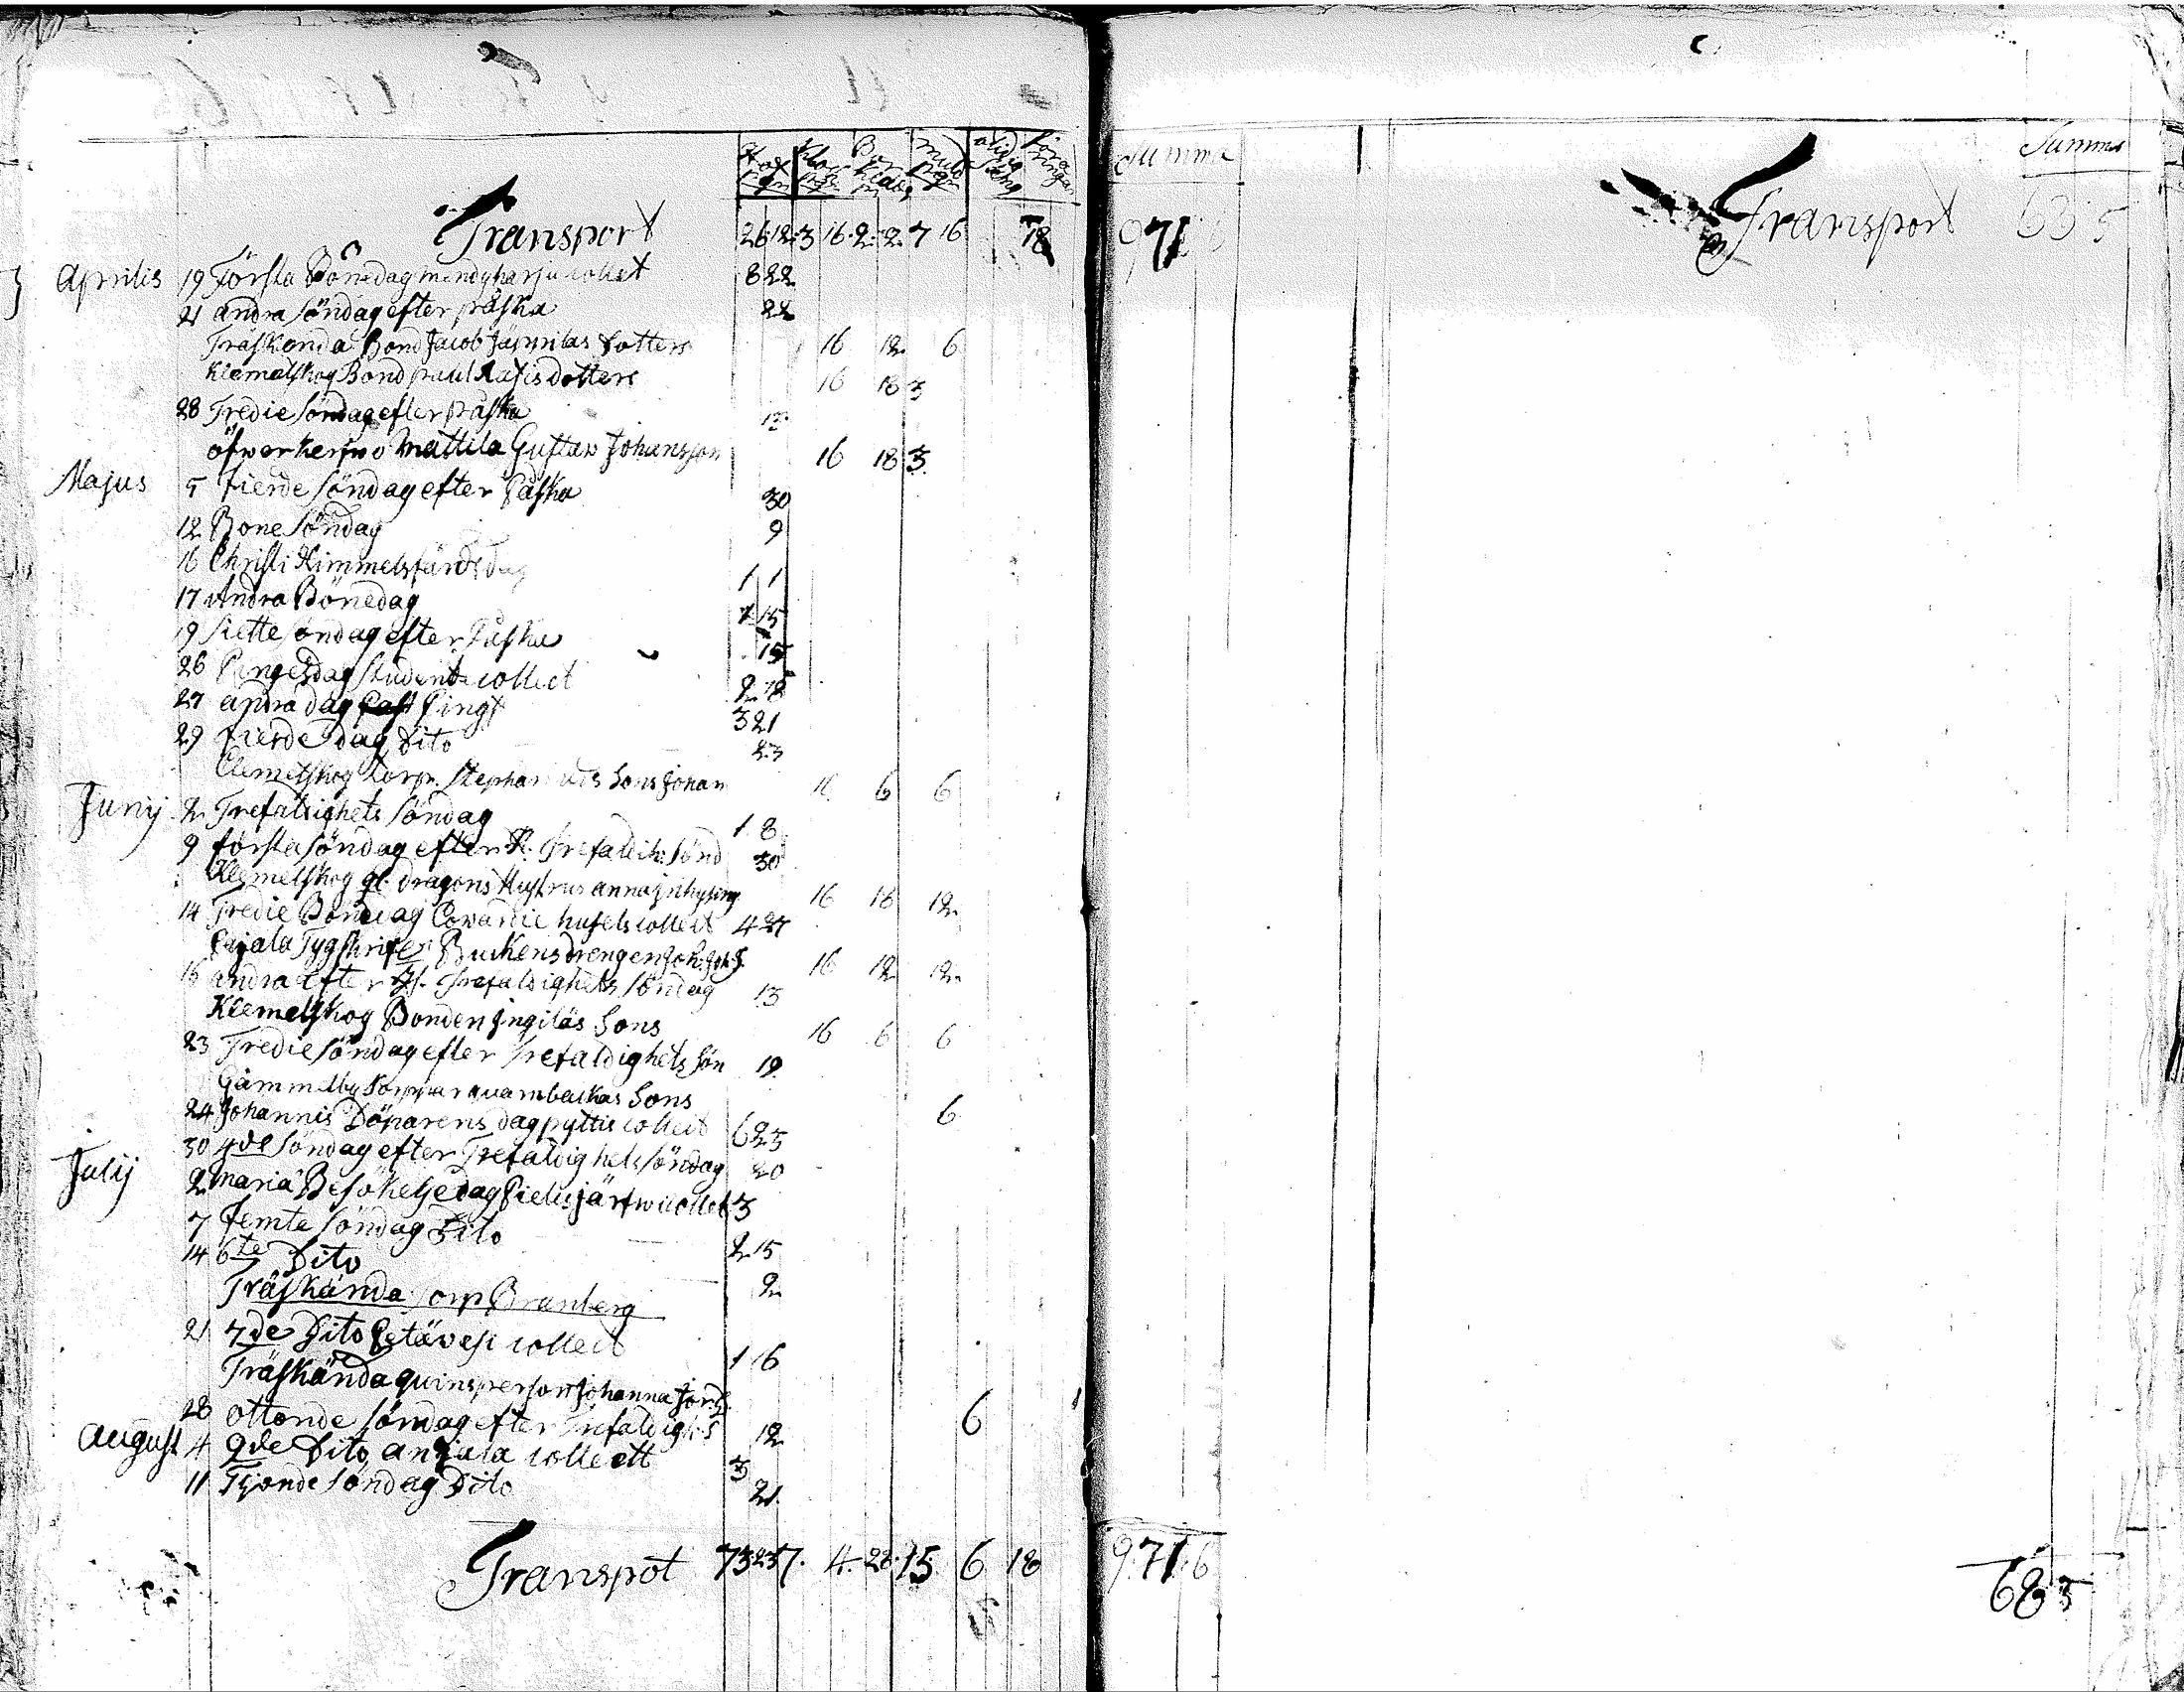 Summa Summa
Transport 26 12 3 16 2 2 7 16 18 971 Transport 63 5
Aprilis 19 Första Bönedag mendyharju collect 8 22
21 andra söndag efter påska 22
Träskenda Bond Jacob Dotters 16 12 6
Klemetskog Bond paul dotters 16 18 3
28 Tredie söndag efter påska 12
öfwerkerfwo Mattila Gustav Johansson 16 18 3
Majus 5 fierde söndag efter Påska 30
12 Bone söndag 9
16 Christi Himmelsfärds dag 1 1
17 Andra Bönedag 1 15
19 siette söndag efter Påska 15
26 Pingesdag student collect 2 18
27 andra dag Pingst 3 21
29 fierde dag Dito 23
Clemetskog torp. Stephan Sons Johan 6 6
Junij 2 Trefaldighets Söndag 1 8
9 första söndag efter H. Trefaldih: sönd 30
Klemetskog gl. dragons Hustrus anna 16 18 12
14 Tredie Bönedag husets collect 4 27
Tygskrifr drengen Joh: 16 12 12
andra efter H. Trefaldighets söndag 13
Klemetskog Bonden Ingiläs Sons 16 6 6
23 Tredie söndag efter Trefaldighets sön 19
Gammelby Sons 6
24 Johannis Döparens dag pyttis collect 6 23
30 4de söndag efter Trefaldighets söndag 20
Julij 2 Maria Besökelsedag Pielisjärfwi collect 3
7 femte söndag Dito 2 15
14 6te Dito 2
Träskända torp Branberg
21 7de Dito Petävesi collect 1 16
Träskända quinsperson Johanna 6
28 ottonde söndag efter Trefaldighs 12
August 4 9de Dito anjala collectt 3
11 Tjonde söndag Dito 21
Transpot 73 23 7 4 28 15 6 18 971 6
68 5